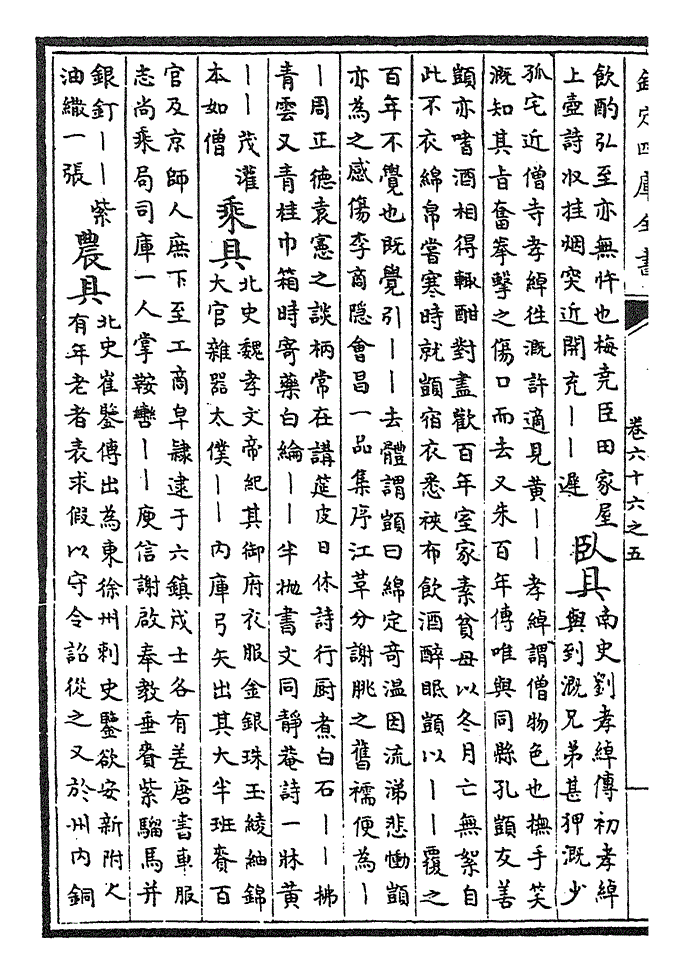 欽定四庫全書
卷六十六之五
飲酌弘至亦無忤也梅堯臣田家屋
上壺詩収挂烟突近開充――遲
臥具
南史劉孝綽傳初孝綽
與到溉兄弟甚狎溉少
孤宅近僧寺孝綽往溉許適見黄――孝綽謂僧物色也撫手笑
溉知其㫖奮拳擊之傷口而去又朱百年傳唯與同縣孔顗友善
顗亦嗜酒相得輒酣對盡歡百年室家素貧母以冬月亡無絮自
此不衣綿帛嘗寒時就顗宿衣悉裌布飲酒醉眠顗以――覆之
百年不覺也既覺引――去體謂顗曰綿定竒温因流涕悲慟顗
亦為之感傷李商隱會昌一品集序江草分謝朓之舊襦便為―
―周正德袁憲之談柄常在講筵皮日休詩行厨煮白石――拂
青雲又青桂巾箱時寄藥白綸――半抛書文同靜菴詩一牀黄
――茂灌
本如僧
乘具
北史魏孝文帝紀其御府衣服金銀珠玉綾紬錦
大官雜器太僕――内庫弓矢出其大半班賚百
官及京師人庶下至工商皁隷逮于六鎮戍士各有差唐書車服
志尚乘局司庫一人掌鞍轡――庾信謝啟奉教垂賚紫騮馬并
銀釘――紫
油繖一張
農具
北史崔鑒傳出為東徐州刺史鑒欲安新附人
有年老者表求假以守令詔從之又於州内銅